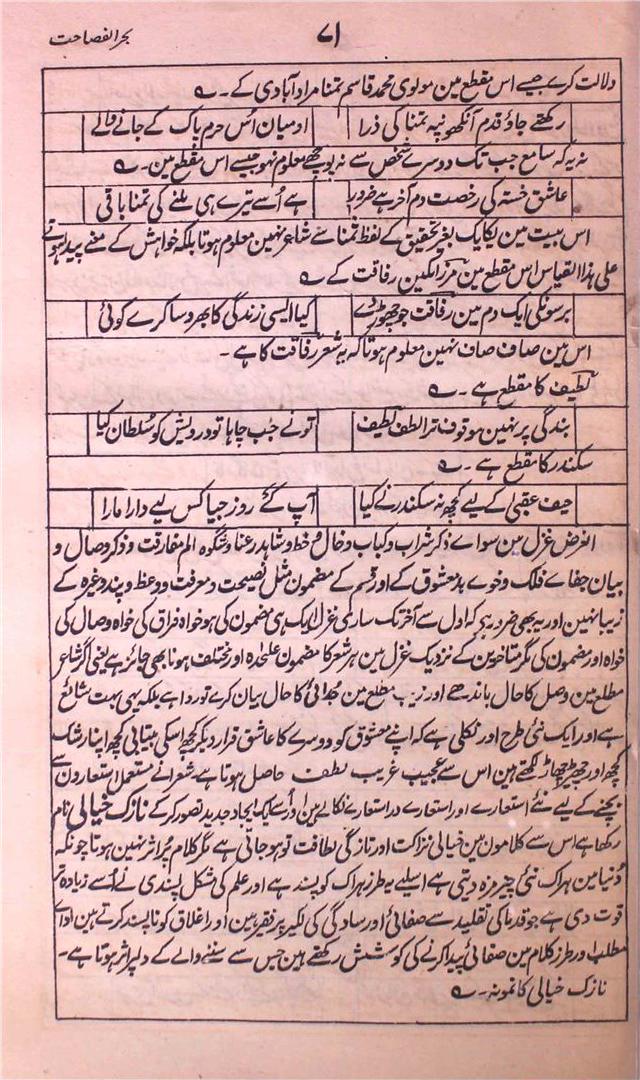 بحر الفصاحت
۷۱
دلالت کرے جیسے اس مقطع مین مولوی محمد قاسم تمنا مراد آبادی کے۔
رکھتے جاؤ قدم آنکھونپہ تمنا کی ذرا او میان اُس حرم پاک کے جانے والے
نہ یہ کہ سامع جب تک دوسرے شخص سے نہ پوچھے معلوم نہو جیسے اس مقطع مین۔
عاشق خستہ کی رخصت دم آخر ہے ضرور ہے اُسے تیرے ہی ملنے کی تمنا باقی
اس بیت مین یکایک بغیر تحقیق کے لفظ تمنا سے شاعر نہین معلوم ہوتا بلکہ خواہش کے معنے پیدا ہوتے
علی ہذا القیاس اس مقطع مین مرزا مکین رفاقت کے
برسونکی ایک دم مین رفاقت جو چھوڑ دے کیا ایسی زندگی کا بھروسا کرے کوئی
اس مین صاف صاف نہین معلوم ہوتا کہ یہ شعر رفاقت کا ہے۔
لطیف کا مقطع ہے۔
بندگی پر نہین موقوف ترا لطف لطیف تونے جب چاہا تو درویش کو سلطان کیا
سکندر کا مقطع ہے۔
حیف عقبیٰ کے لیے کچھ نہ سکندر نے کیا آپ کے روز جیا کس لیے دارا مارا
الغرض غزل مین سواے ذکر شراب و کباب و خال و خط و شاہد رعنا و شکوہ الم مفارقت و ذکر وصال و
بیان جفاے فلک و خوے بد معشوق کے اور قسم کے مضمون مثل نصیحت و معرفت و وعظ و پند وغیرہ کے
زیبا نہین اور یہ بھی ضرور ہے کہ اول سے آخر تک ساری غزل ایک ہی مضمون کی ہو خواہ فراق کی خواہ وصال کی
خواہ اور مضمون کی مگر متاخرین کے نزدیک غزل مین ہر شعر کا مضمون علٰحدہ اور مختلف ہونا بھی جائز ہے یعنی اگر شاعر
مطلع مین وصل کا حال باندھے اور زیب مطلع مین جدائی کا حال بیان کرے تو روا ہے بلکہ یہی بہت شائع
ہے اور ایک نئی طرح اور نکلی ہے کہ اپنے معشوق کو دوسرے کا عاشق قرار دیکر کچھ اسکی بیتابی کچھ اپنا رشک
کچھ اور چھیڑ چھاڑ لکھتے ہین اس سے عجیب غریب لطف حاصل ہوتا ہے شعرا نے مستعمل استعارون سے
بچنے کے لیے نئے استعارے اور استعارے در استعارے نکالے ہین اور اُسے ایک ایجاد جدید تصور کرکے نازک خیالی نام
رکھا ہے اس سے کلامون مین خیالی نزاکت اور تازگی لطافت تو ہو جاتی ہے مگر کلام پُر اثر نہین ہوتا چونکہ
دُنیا مین ہر اک نئی چیز مزہ دیتی ہے اسلیے یہ طرز ہر اک کو پسند ہے اور علم کی شکل پسندی نے اُسے زیادہ تر
قوت دی ہے جو قدما کی تقلید سے صفائی اور سادگی کی لکیر پر فقیر ہین اور اغلاق کو ناپسند کرتے ہین اداے
مطلب اور طرز کلام مین صفائی پیدا کرنے کی کوشش رکھتے ہین جس سے سننے والے کے دلپر اثر ہوتا ہے۔
نازک خیالی کا نمونہ۔